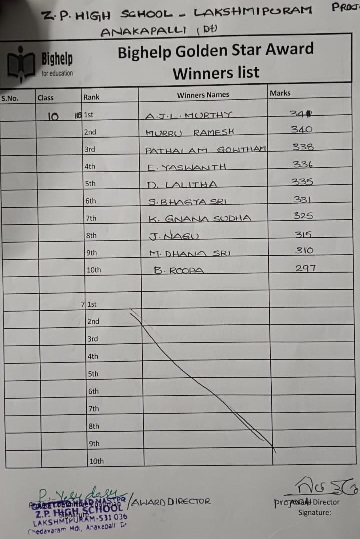 Z.P. HIGH SCHOOL - LAKSHMIPURAM
ANAKAPALLI (Dt)
Bighelp
for education
Bighelp Golden Star Award
Winners list
S.No. Class Rank Winners Names Marks
10 1st A.J.L. MURTHY
2nd MURRU RAMESH 340
3rd PATHALAM GOWTHAM 338
4th L. YASWANTH 336
5th D. LALITHA 335
6th S. BHAGYA SRI 331
7th K. GNANA SUDHA 325
8th J. NAGU 315
9th M. DHANA SRI 310
10th B. ROOPA 297
7 1st
2nd
3rd
4th
5th
6th
7th
8th
9th
10th
/AWARD DIRECTOR
HEADMASTER
Z.P. HIGH SCHOOL
LAKSHMIPURAM-531 026
Director
Signature: